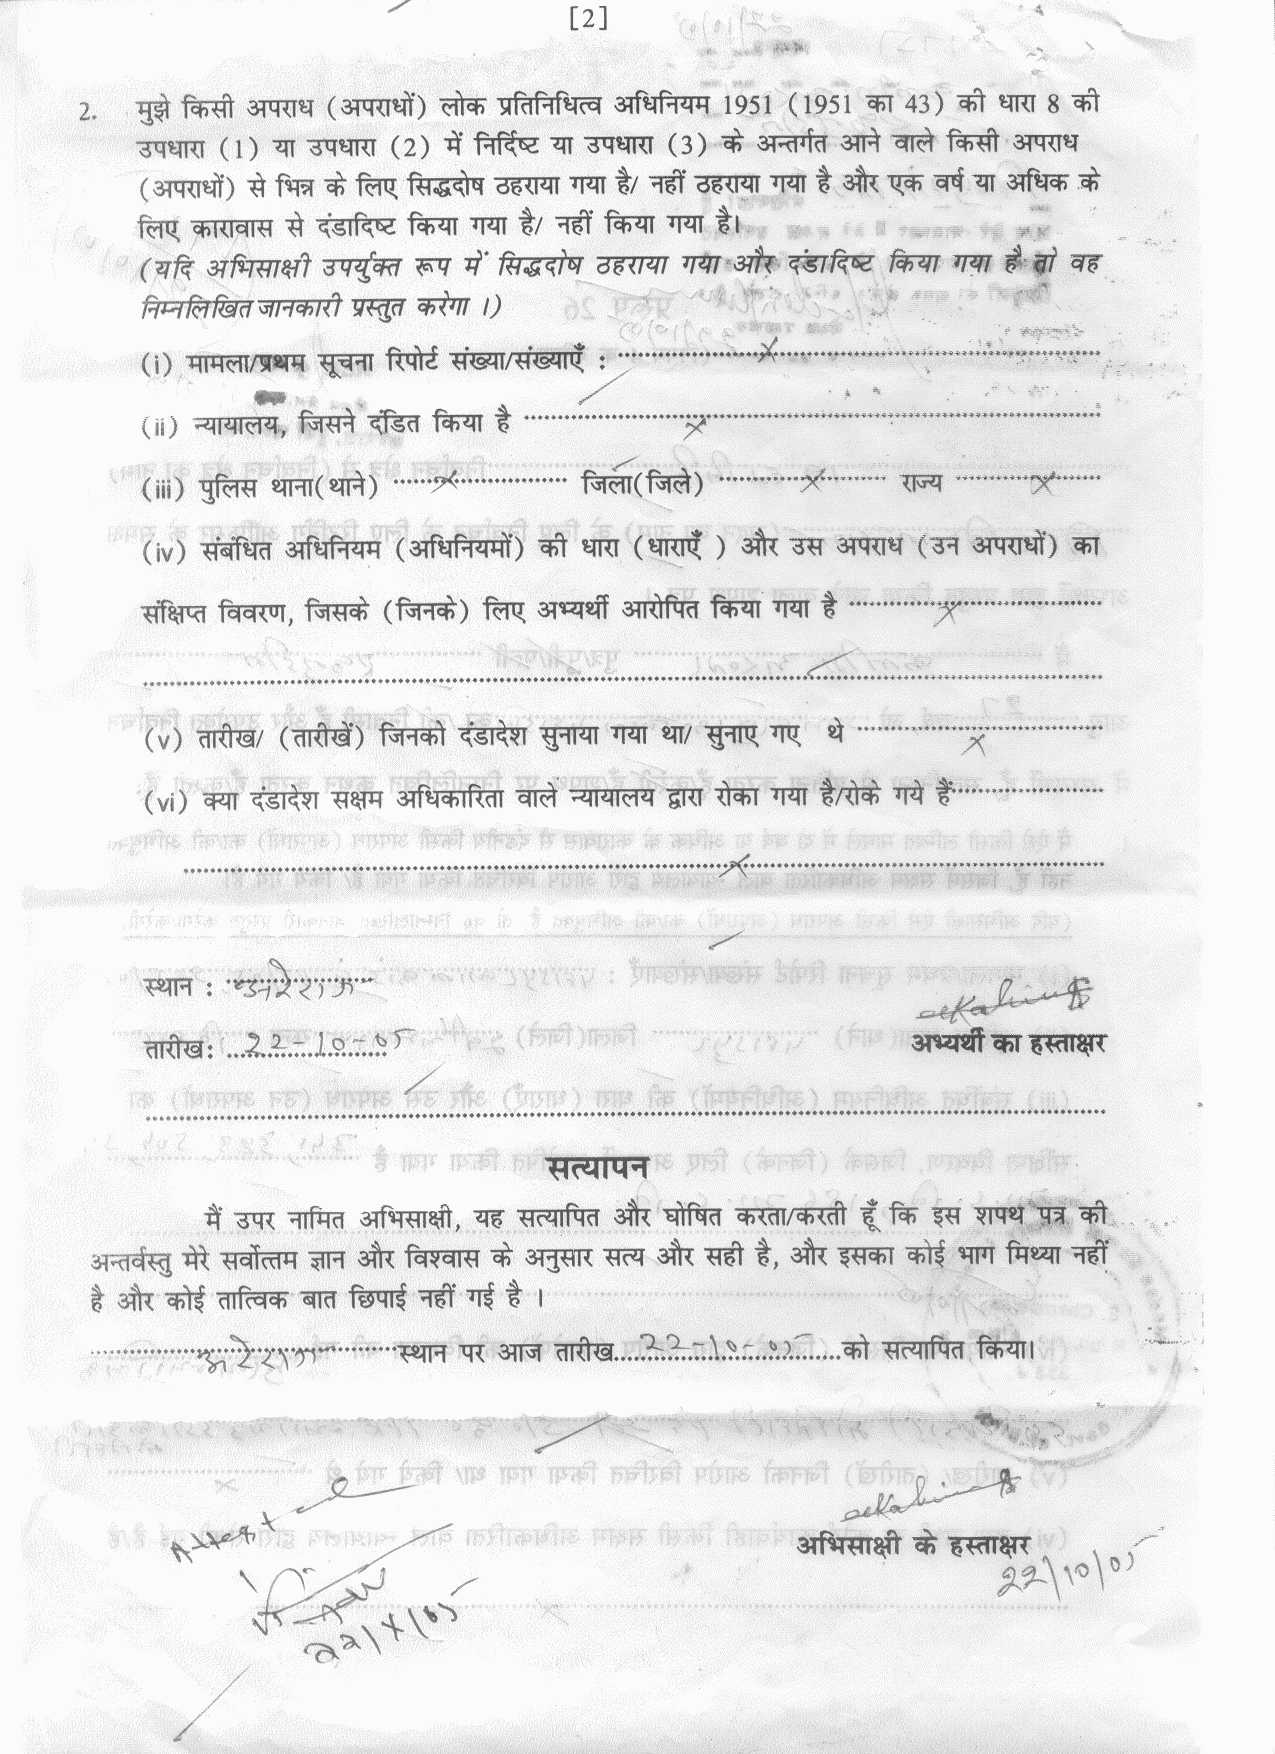 [2]
2. मुझे किसी अपराध (अपराधों) लोक प्रतिनिधित्व अधिनियम 1951 (1951 का 43) की धारा 8 की
उपधारा (1) या उपधारा (2) में निर्दिष्ट या उपधारा (3) के अन्तर्गत आने वाले किसी अपराध
(अपराधों) से भिन्न के लिए सिद्धदोष ठहराया गया है/ नहीं ठहराया गया है और एक वर्ष या अधिक के
लिए कारावास से दंडादिष्ट किया गया है/ नहीं किया गया है।
(यदि अभिसाक्षी उपर्युक्त रूप में सिद्धदोष ठहराया गया और दंडादिष्ट किया गया है तो वह
निम्नलिखित जानकारी प्रस्तुत करेगा ।)
(i) मामला/प्रथम सूचना रिपोर्ट संख्या/संख्याएँ : x
(ii) न्यायालय, जिसने दंडित किया है x
(iii) पुलिस थाना(थाने) x जिला(जिले) x राज्य x
(iv) संबंधित अधिनियम (अधिनियमों) की धारा (धाराएँ ) और उस अपराध (उन अपराधों) का
संक्षिप्त विवरण, जिसके (जिनके) लिए अभ्यर्थी आरोपित किया गया है x
(v) तारीख/ (तारीखें) जिनको दंडादेश सुनाया गया था/ सुनाए गए थे x
(vi) क्या दंडादेश सक्षम अधिकारिता वाले न्यायालय द्वारा रोका गया है/रोके गये हैं
x
स्थान : अरेराज
तारीख: 22-10-05
अभ्यर्थी का हस्ताक्षर
सत्यापन
मैं उपर नामित अभिसाक्षी, यह सत्यापित और घोषित करता/करती हूँ कि इस शपथ पत्र की
अन्तर्वस्तु मेरे सर्वोत्तम ज्ञान और विश्वास के अनुसार सत्य और सही है, और इसका कोई भाग मिथ्या नहीं
है और कोई तात्विक बात छिपाई नहीं गई है ।
अरेराज स्थान पर आज तारीख 22-10-05 को सत्यापित किया।
अभिसाक्षी के हस्ताक्षर
22/10/05
22/X/05